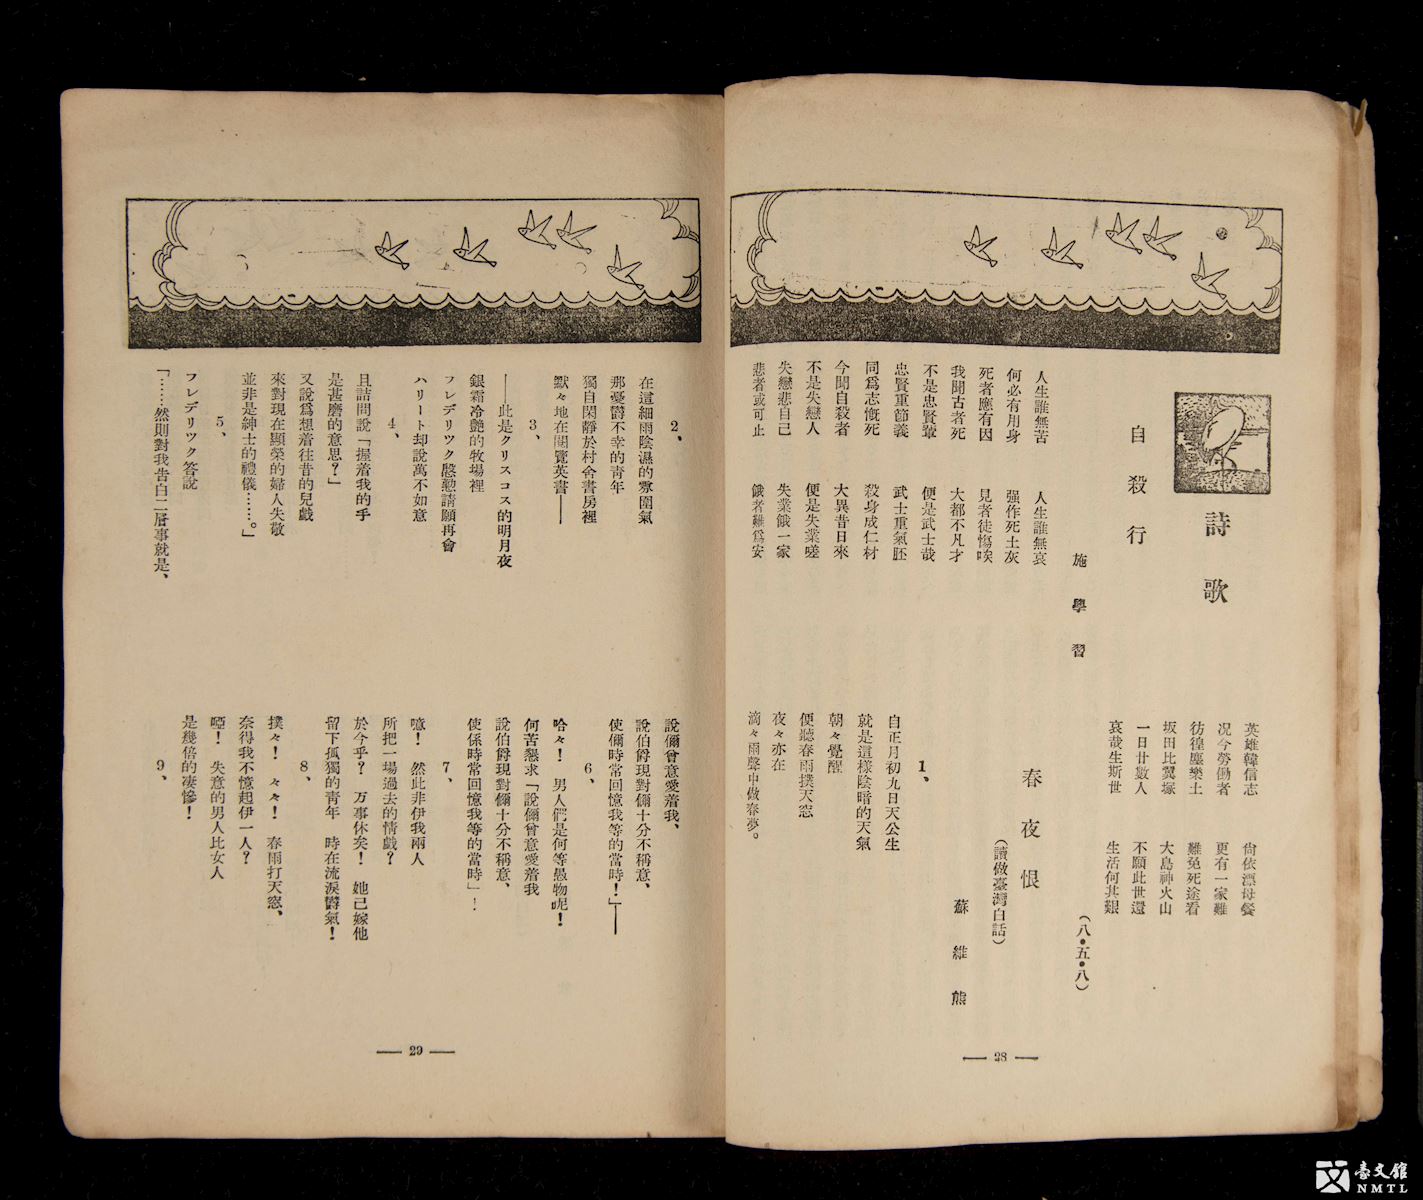 詩歌
自殺行
施學習
人生誰無苦　人生誰無哀
何必有用身　强作死土灰
死者應有因　見者徒傷唉
我聞古者死　大都不凡才
不是忠賢輩　便是武士哉
忠賢重節義　武士重氣胚
同爲志慨死　殺身成仁材
今聞自殺者　大異昔日來
不是失戀人　便是失業嗟
失戀悲自己　失業餓一家
悲者或可止　餓者難爲安
英雄韓信志　尙依漂母餐
况今勞働者　更有一家難
彷徨塵樂土　難免死途看
坂田比翼塚　大島神火山
一日廿數人　不願此世還
哀哉生斯世　生活何其艱
（八・五・八）
春夜恨
（讀做臺灣白話）
蘇維熊
1、
自正月初九日天公生
就是這樣陰暗的天氣
朝々覺醒
便聽春雨撲天窓
夜々亦在
滴々雨聲中做春夢。
— 28 —
2、
在這細雨陰濕的雰圍氣
那憂欝不幸的靑年
獨自閑靜於村舍書房裡
默々地在閱覽英書——
3、
——此是クリスコス的明月夜
銀霜冷艶的牧場裡
フレデリツク慇懃請願再會
ハリート却說萬不如意
4、
且詰問說「握着我的手
是甚麽的意思？」
又說爲想着往昔的兒戱
來對現在顯榮的婦人失敬
並非是紳士的禮儀……。」
5、
フレデリツク答說
「……然則對我告白二層事就是、
說儞曾意愛着我、
說伯爵現對儞十分不稱意、
使儞時常回憶我等的當時！」——
6、
哈々！　男人們是何等愚物呢！
何苦懇求「說儞曾意愛着我
說伯爵現對儞十分不稱意、
使係時常回憶我等的當時」！
7、
噫！　然此非伊我兩人
所把一場過去的情戱？
於今乎？　万事休矣！　她已嫁他
留下孤獨的靑年　時在流淚欝氣！
8、
撲々！　々々！　春雨打天窓、
奈得我不憶起伊一人？
啞！　失意的男人比女人
是幾倍的凄慘！
9、
— 29 —
臺文館
NMTL